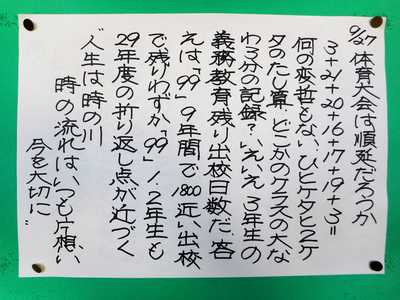 9/27 体育大会は順延だろうか
3+21+20+16+17+19+3=
何の変哲もない、ひとケタと2ケ
タのたし算、どこかのクラスの大な
わ3分の記録？いえいえ3年生の
義務教育残り出校日数だ、答
えは「99」9年間で1800近い出校
で残りわずか「99」！2年生も
29年度の折り返し点が近づく
"人生は時の川
時の流れは、いつも片想い
今を大切に"